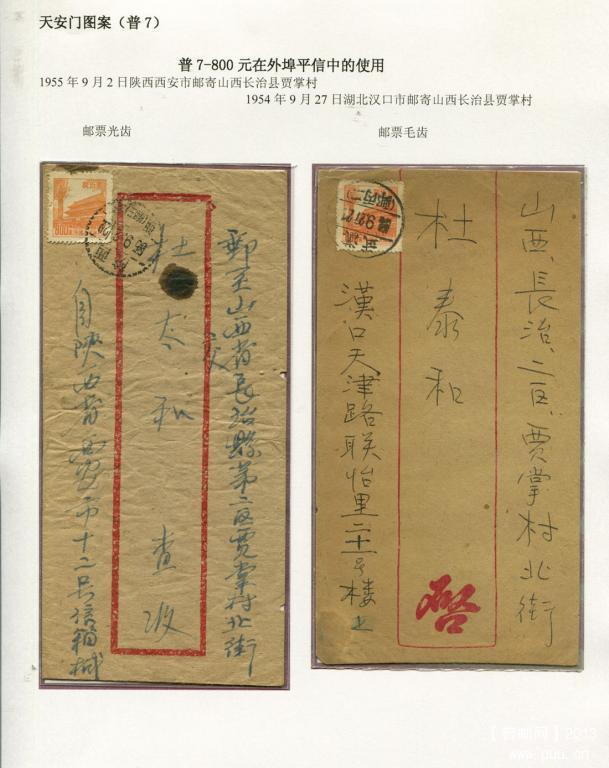 天安门图案（普7）
普7-800元在外埠平信中的使用
1955年9月2日陕西西安市邮寄山西长治县贾掌村
1954年9月27日湖北汉口市邮寄山西长治县贾掌村
邮票光齿
邮票毛齿
800
郵至山西省長治縣第二區賈掌村北街
交
杜太和查收
自陝西省西安市十二号信箱
山西、長治、二區、賈掌村北街
杜泰和
啓
漢口天津路联怡里二十一号楼上
2013
www.